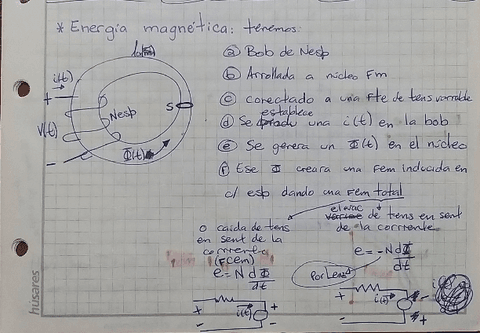 * Energía magnética: tenemos:
i(t)
+
V(t)
-
Nesp
S
Φ(t)
a) Bob de Nesp
b) Arrollada a núcleo Fm
c) conectado a una Fte de tens variable
establece
d) Se una i(t) en la bob
e) Se genera un Φ(t) en el núcleo
f) Ese Φ creara una Fem inducida en
c/ esp dando una Fem total
o caída de tens
en sent de la
corriente
(FCem)
e = N dΦ/dt
+
-
i(t)
+
-
elevac
de tens en sent
de la corriente
e = -N dΦ/dt
Por Lenz
+
-
i(t)
husares